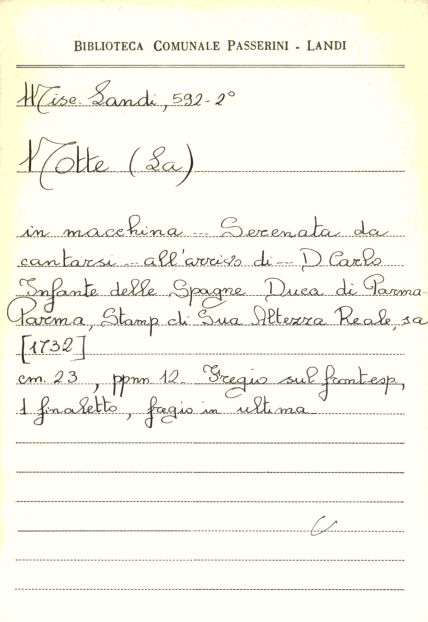 BIBLIOTECA COMUNALE PASSERINI - LANDI
Misc. Landi, 592-2°
Notte (La)
in macchina -- Serenata da
cantarsi -- all'arrivo di -- D Carlo
Infante delle Spagne Duca di Parma
Parma, Stamp di Sua Altezza Reale, sa
[1732]
cm. 23, ppnn 12. Fregio sul frontesp,
1 finaletto, fregio in ultima